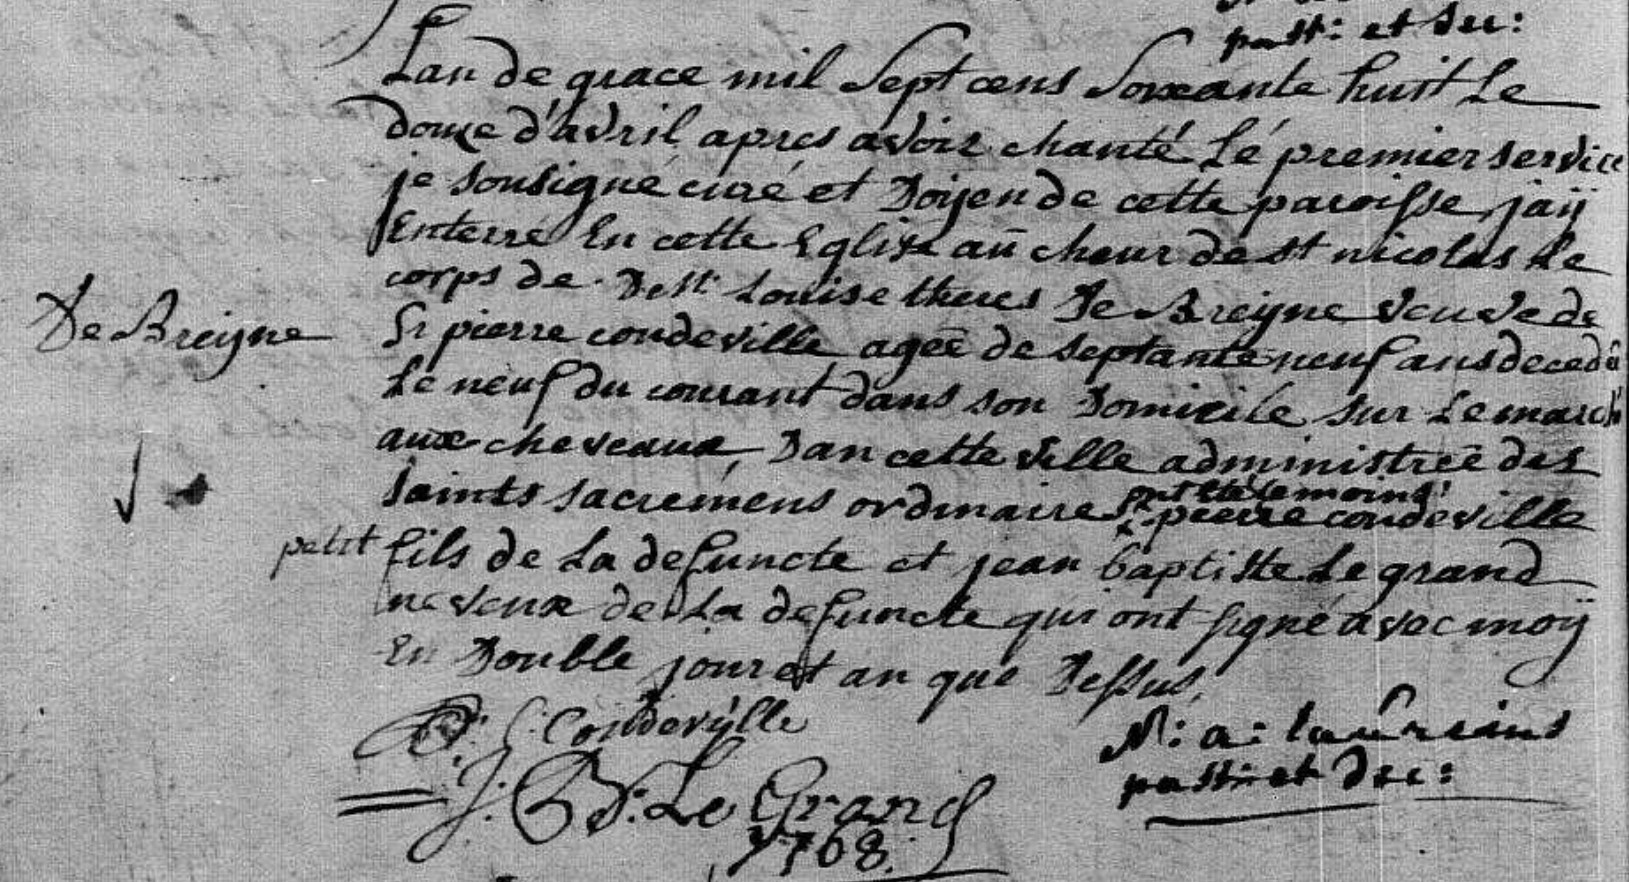 past: et dec:
Lan de grace mil Sept cens Soixante huit Le
douze d'avril apres avoir chanté Lé premier service
je sousigné curé et Doijen de cette paroisse jaij
Enterré En cette Eglise au chœur de st nicolas Le
corps de Delle Louise theres De Breijne veuve de
De Breijne
Sr pierre condeville ageé de septante neuf ans decedé
Le neuf du courant dans son Domicile sur Le marché
aux cheveaux, Dan cette ville administreé des
saints sacremens ordinaire ont été temoins
Sr pierre condeville
petit fils de La defuncte et jean baptiste Le grand
neveux de La defuncte qui ont signé avec moij
En Double jour et an que Dessus,
P: J: Condeville
N: a: laureins
past: et dec:
J: B: Le Grand
1768.